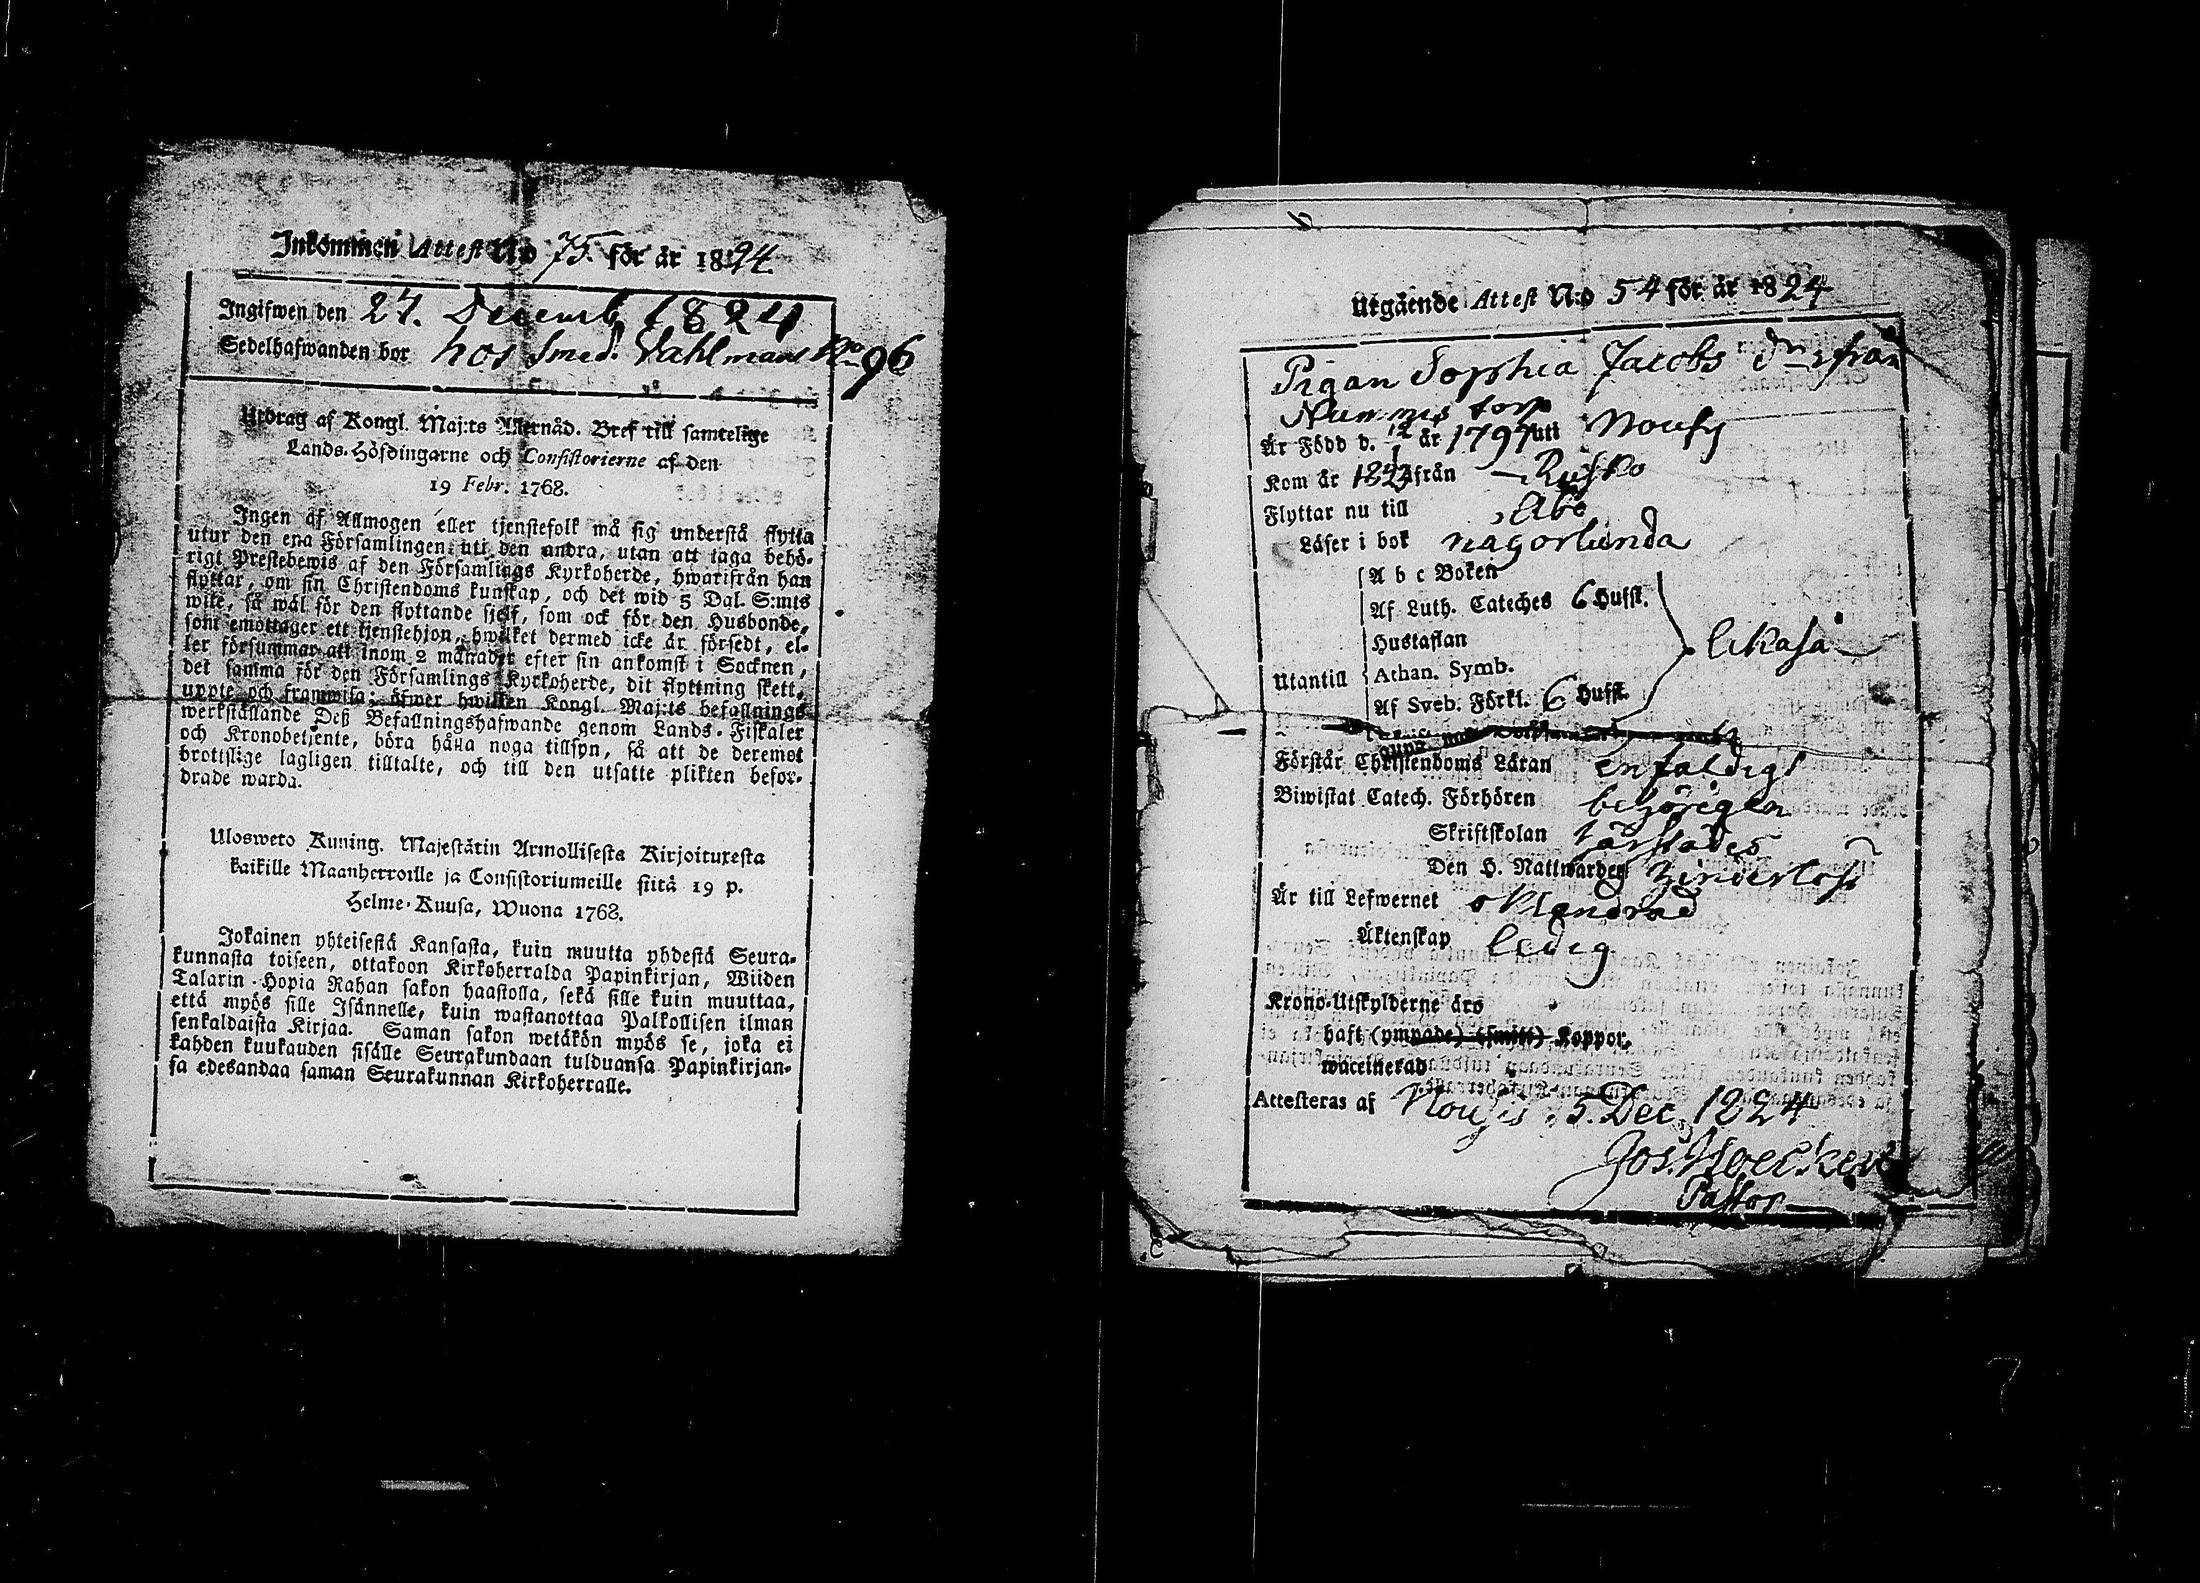 Inkommen Attest No 75. för år 1824.
Ingifwen den 27. Decemb 1824
Sedelhafwanden bor hos Smed. Dahlmans No 96
Utdrag af Kongl. Maj:ts Allernåd. Bref till samtelige
Lands-Höfdingarne och Consistorierne af den
19 Febr. 1768.
Ingen af Allmogen eller tjenstefolk må sig understå flytta
utur den ena Församlingen uti den andra, utan att taga behö-
rigt Prestebewis af den Församlings Kyrkoherde, hwarifrån han
flyttar, om sin Christendoms kunskap, och det wid 5 Dal. S:mts
wite, så wäl för den flyttande sjelf, som ock för den Husbonde,
som emottager ett tjenstehjon, hwilket dermed icke är försedt, el-
ler försummar att inom 2 månader efter sin ankomst i Socknen,
det samma för den Församlings Kyrkoherde, dit flyttning skett,
uppte och framwisa; öfwer hwilken Kongl. Maj:ts befallnings
werkställande Deß Befallningshafwande genom Lands-Fiskaler
och Kronobetjente, böra hålla noga tillsyn, så att de deremot
brottslige lagligen tilltalte, och till den utsatte plikten befor-
drade warda.
Ulosweto Kuning. Majestätin Armollisesta Kirjoituxesta
kaikille Maanherroille ja Consistoriumeille siitä 19 p.
Helme-Kuusa, Wuona 1768.
Jokainen yhteisestä Kansasta, kuin muutta yhdestä Seura-
kunnasta toiseen, ottakoon Kirkoherralda Papinkirjan, Wiiden
Talarin Hopia Rahan sakon haastolla, sekä sille kuin muuttaa,
että myös sille Isännelle, kuin wastanottaa Palkollisen ilman
senkaldaista Kirjaa. Saman sakon wetäkön myös se, joka ei
kahden kuukauden sisälle Seurakundaan tulduansa Papinkirjan-
sa edesandaa saman Seurakunnan Kirkoherralle.
Utgående Attest N:o 54 för år 1824
Pigan Sophia Jacobs dr från
Nummis torp
Är Född d. 12 år 1797 uti Nousis
Kom år 1824 från Rusko
Flyttar nu till Åbo
Läser i bok någorlunda
A b c Boken
Af Luth. Cateches 6 Hufst.
Hustaflan
likaså
Utantill Athan. Symb.
Af Sveb. Förkl. 6 Hufst.
Förstår Christendoms Läran enfaldigt
Biwistat Catech. Förhören behörigen
Skriftskolan
Den H. Nattwarden
Är till Lefwernet oklandrad
Äktenskap ledig
Krono-Utskylderne äro
haft (ympade) (smitt) Koppor.
waccinerad
Attesteras af Nousis 5. Dec. 1824
Jos. Hoeckert
Pastor